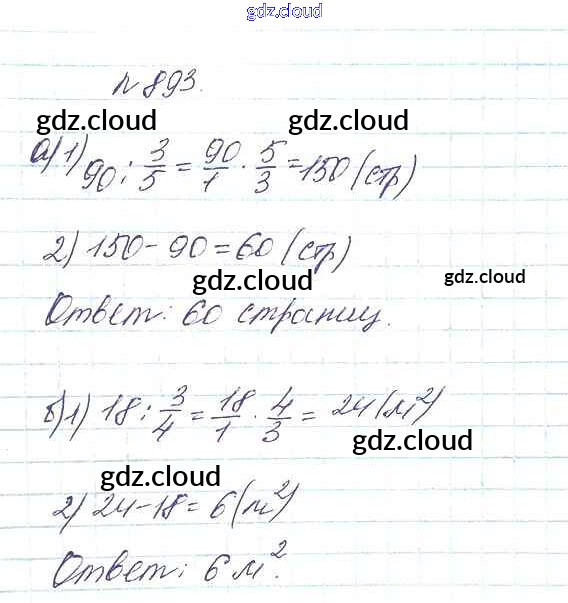 gdz.cloud
№ 893.
gdz.cloud gdz.cloud
а) 1) 90 : 3/5 = 90/1 · 5/3 = 150 (стр)
2) 150 - 90 = 60 (стр)
gdz.cloud gdz.cloud
Ответ: 60 страниц.
б) 1) 18 : 3/4 = 18/1 · 4/3 = 24 (м²)
gdz.cloud
gdz.cloud
2) 24 - 18 = 6 (м²)
Ответ: 6 м².